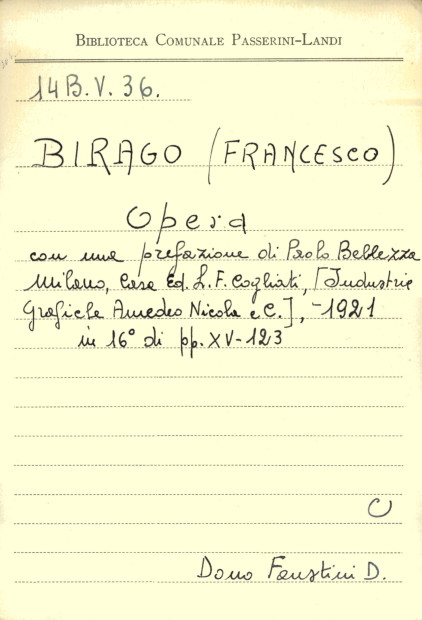 BIBLIOTECA COMUNALE PASSERINI-LANDI
14B.V.36.
BIRAGO (FRANCESCO)
Opera
con una prefazione di Paolo Bellezza
Milano, Casa Ed. L. F. Cogliati, [Industrie
Grafiche Amedeo Nicola e C.], 1921
in 16° di pp. XV-123
C
Dono Faustini D.